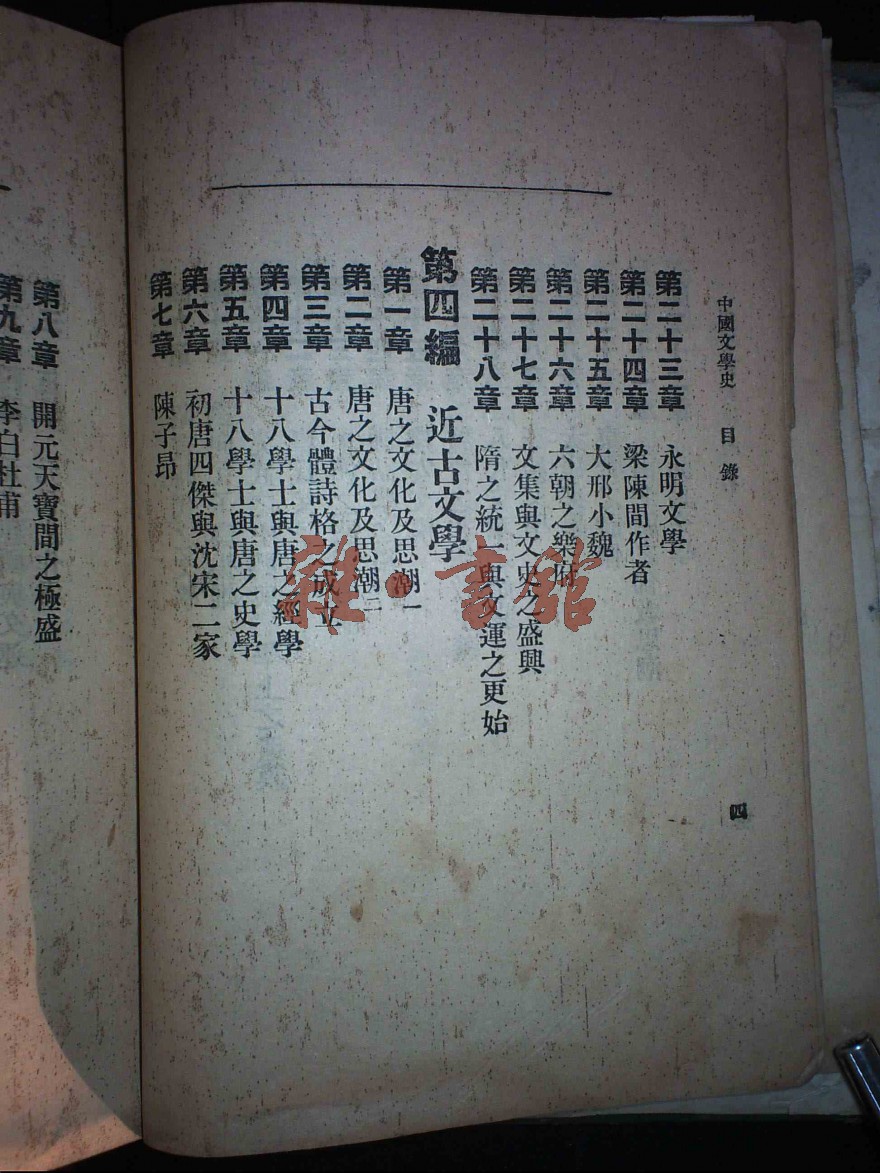 中國文學史 目錄 四
第二十三章 永明文學
第二十四章 梁陳間作者
第二十五章 大邢小魏
第二十六章 六朝之樂府
第二十七章 文集與文史之盛興
第二十八章 隋之統一與文運之更始
第四編 近古文學
第一章 唐之文化及思潮一
第二章 唐之文化及思潮二
第三章 古今體詩格之成立
第四章 十八學士與唐之經學
第五章 十八學士與唐之史學
第六章 初唐四傑與沈宋二家
第七章 陳子昂
第八章 開元天寶間之極盛
第九章 李白杜甫
雜·書館